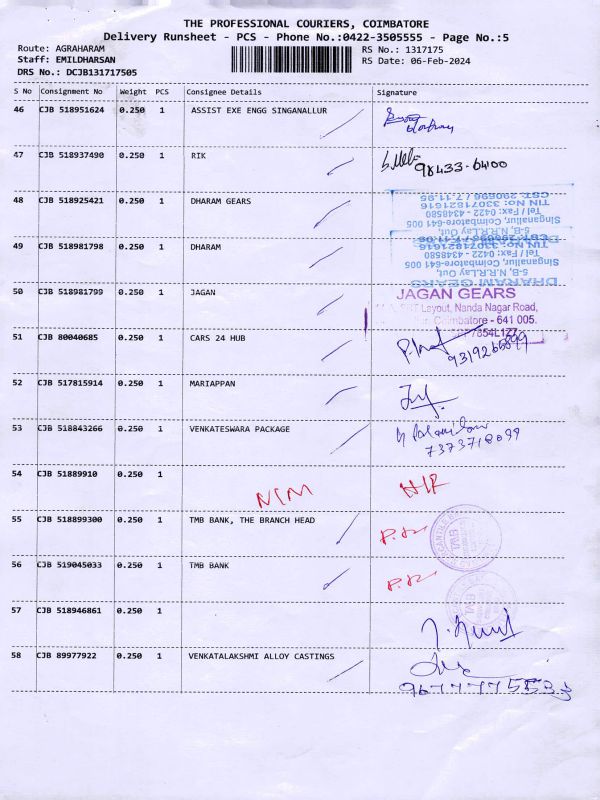 THE PROFESSIONAL COURIERS, COIMBATORE
Delivery Runsheet - PCS - Phone No.:0422-3505555 - Page No.:5
Route: AGRAHARAM
Staff: EMILDHARSAN
DRS No.: DCJB131717505
RS No.: 1317175
RS Date: 06-Feb-2024
S No Consignment No Weight PCS Consignee Details Signature
46 CJB 518951624 0.250 1 ASSIST EXE ENGG SINGANALLUR
47 CJB 518937490 0.250 1 RIK 98433-6400
48 CJB 518925421 0.250 1 DHARAM GEARS
CST: 290696 / 7.11.95
TIN No: 33071821616
Tel / Fax: 0422 - 4348580
Singanallur, Coimbatore-641 005
5-B, N.R.R.Lay Out,
49 CJB 518981798 0.250 1 DHARAM
TIN No: 33071821616
Tel / Fax: 0422 - 4348580
Singanallur, Coimbatore-641 005
5-B, N.R.R.Lay Out,
DHARAM GEARS
50 CJB 518981799 0.250 1 JAGAN
JAGAN GEARS
Layout, Nanda Nagar Road,
Coimbatore - 641 005.
51 CJB 80040685 0.250 1 CARS 24 HUB
52 CJB 517815914 0.250 1 MARIAPPAN
53 CJB 518843266 0.250 1 VENKATESWARA PACKAGE
7373718099
54 CJB 51889910 0.250 1
55 CJB 518899300 0.250 1 TMB BANK, THE BRANCH HEAD
56 CJB 519045033 0.250 1 TMB BANK
57 CJB 518946861 0.250 1
58 CJB 89977922 0.250 1 VENKATALAKSHMI ALLOY CASTINGS